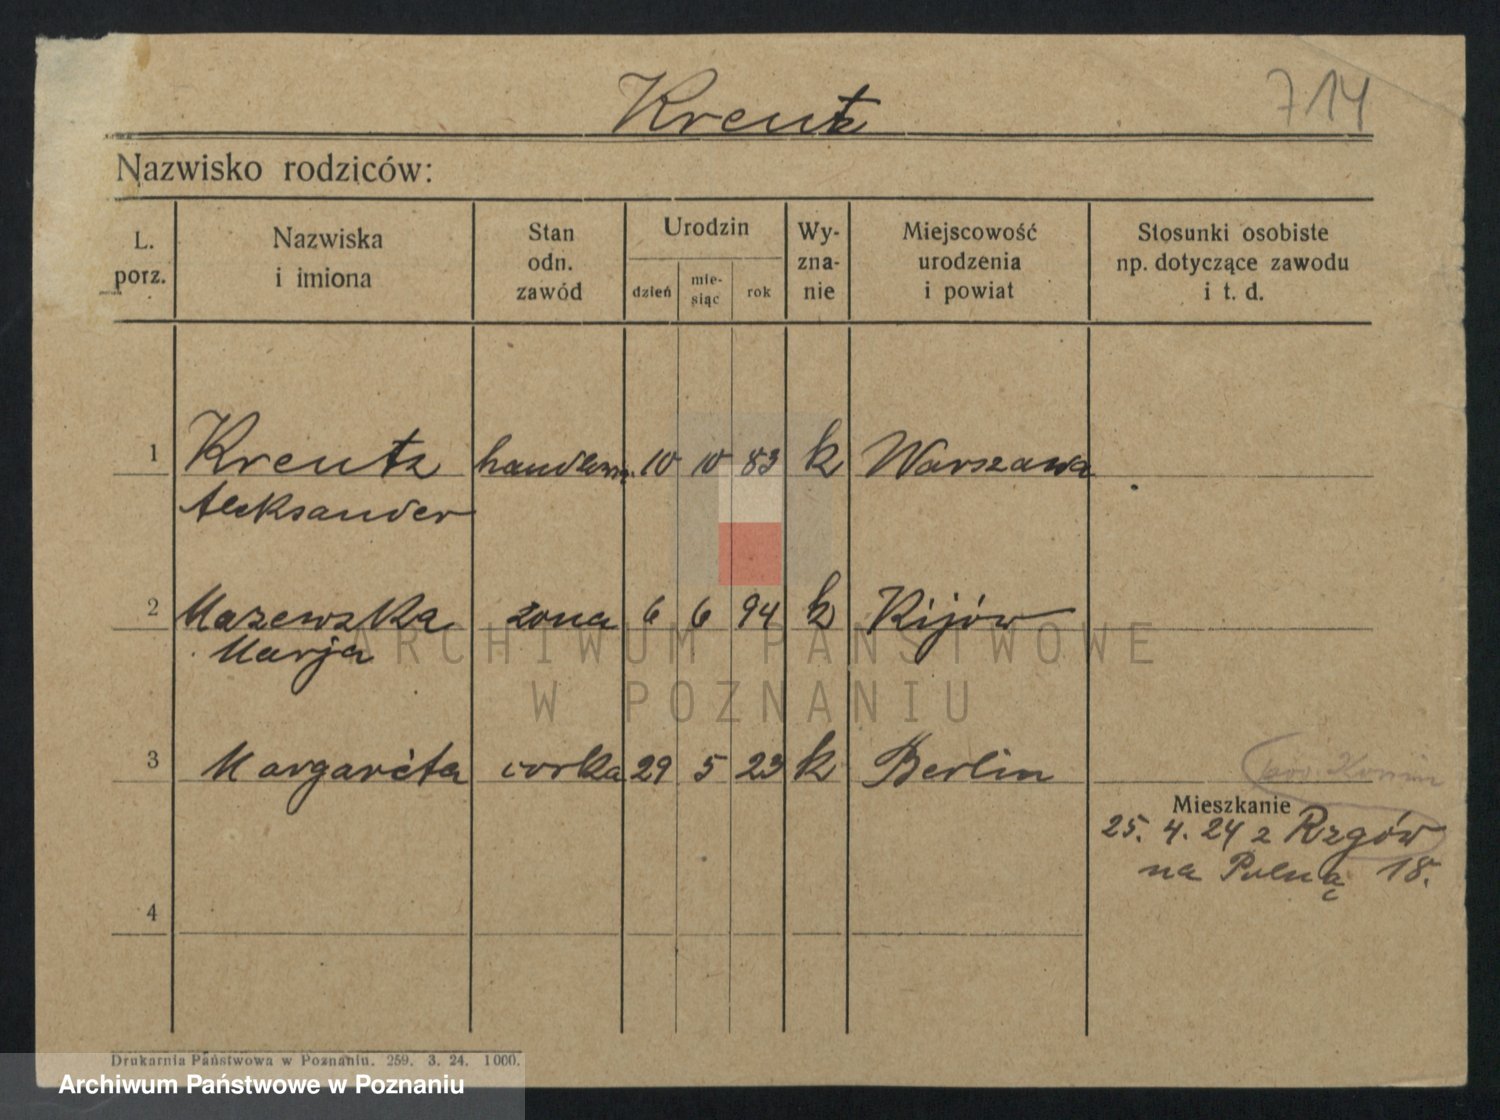 Kreutz
714
Nazwisko rodziców:
L. porz.
Nazwiska i imiona
Stan odn. zawód
Urodzin
dzień
mie- siąc
rok
Wy- zna- nie
Miejscowość urodzenia i powiat
Stosunki osobiste np. dotyczące zawodu i t. d.
1 Kreutz 10 10 83 k Warszawa
Aleksander
2 Mazewska żona 6 6 94 k Kijów
Marja
3 Margaréta corka 29 5 23 k Berlin
pow. Konin
Mieszkanie
25. 4. 24 z Rzgów
na Polną 18.
4
ARCHIWUM PAŃSTWOWE
W POZNANIU
Drukarnia Państwowa w Poznaniu. 259. 3. 24. 1000.
Archiwum Państwowe w Poznaniu